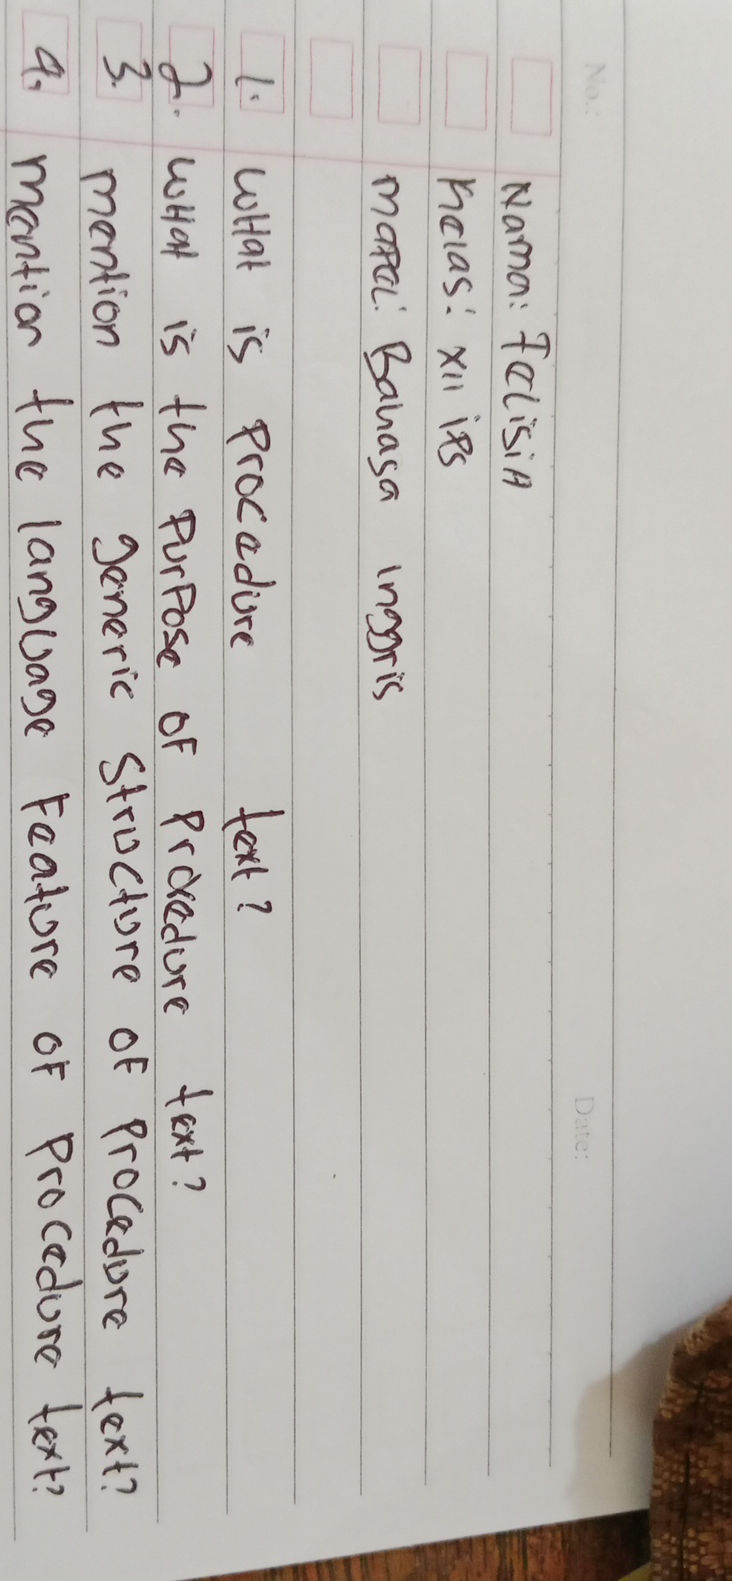 No.: Date:
Nama: Felisia
Kelas: XII iPS
mapel: Bahasa inggris
1. what is procedure text?
2. what is the purpose of procedure text?
3. mention the generic structure of procedure text?
4. mention the language feature of procedure text?